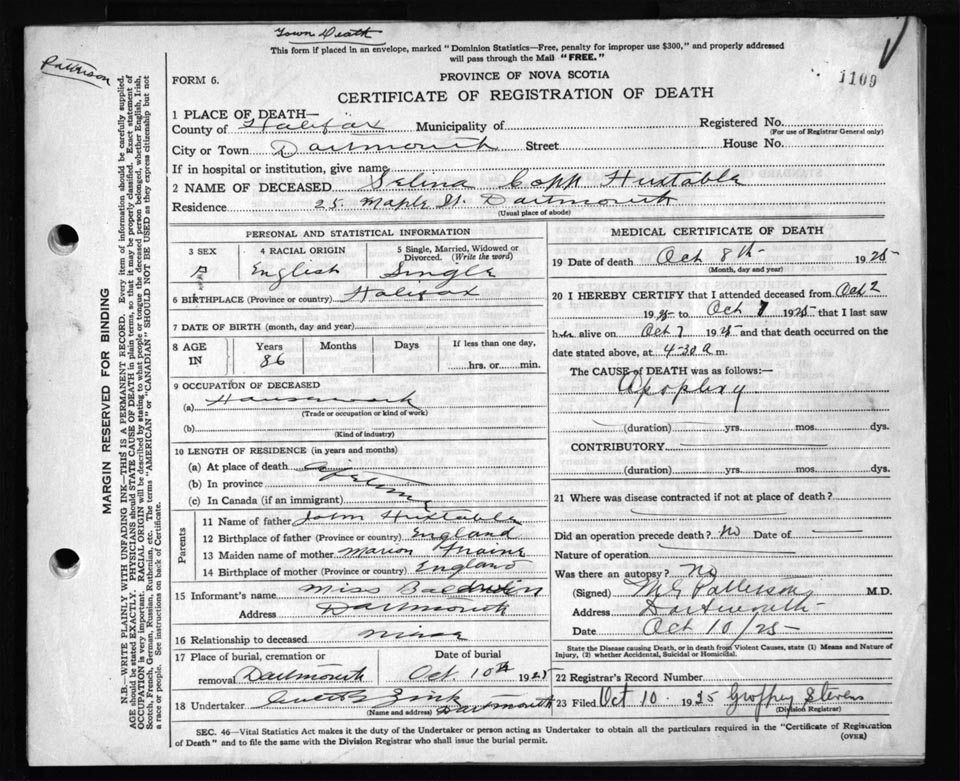 Town Death
This form if placed in an envelope, marked "Dominion Statistics—Free, penalty for improper use $300," and properly addressed
will pass through the Mail "FREE."
Patterson
1109
FORM 6.
PROVINCE OF NOVA SCOTIA
CERTIFICATE OF REGISTRATION OF DEATH
1 PLACE OF DEATH—
County of Halifax Municipality of Registered No.
(For use of Registrar General only)
City or Town Dartmouth Street House No.
If in hospital or institution, give name
2 NAME OF DECEASED Selina Copp Huxtable
Residence 25 Maple St. Dartmouth
(Usual place of abode)
PERSONAL AND STATISTICAL INFORMATION
3 SEX
4 RACIAL ORIGIN English
5 Single, Married, Widowed or Divorced. (Write the word)
Single
6 BIRTHPLACE (Province or country) Halifax
7 DATE OF BIRTH (month, day and year)
8 AGE IN
Years Months Days If less than one day,
86 hrs. or min.
9 OCCUPATION OF DECEASED
(a) Housework
(Trade or occupation or kind of work)
(b)
(Kind of industry)
10 LENGTH OF RESIDENCE (in years and months)
(a) At place of death
(b) In province Lifetime
(c) In Canada (if an immigrant)
Parents
11 Name of father John Huxtable
12 Birthplace of father (Province or country) England
13 Maiden name of mother Marion
14 Birthplace of mother (Province or country) England
15 Informant's name Miss Baldwin
Address Dartmouth
16 Relationship to deceased niece
17 Place of burial, cremation or removal Dartmouth
Date of burial Oct. 10th 1925
18 Undertaker Zink
(Name and address) Dartmouth
MEDICAL CERTIFICATE OF DEATH
19 Date of death Oct 8th 1925
(Month, day and year)
20 I HEREBY CERTIFY that I attended deceased from Oct 2
1925 to Oct 7 1925 that I last saw
her alive on Oct 7 1925 and that death occurred on
date stated above, at 4-30 a m.
The CAUSE of DEATH was as follows:—
Apoplexy
(duration) yrs. mos. dys.
CONTRIBUTORY
(duration) yrs. mos. dys.
21 Where was disease contracted if not at place of death?
Did an operation precede death? No Date of
Nature of operation
Was there an autopsy? No
(Signed) Patterson M.D.
Address Dartmouth
Date Oct 10/25
State the Disease causing Death, or in death from Violent Causes, state (1) Means and Nature of
Injury, (2) whether Accidental, Suicidal or Homicidal.
22 Registrar's Record Number
23 Filed Oct 10 1925 Geoffrey Stevens
(Division Registrar)
SEC. 46—Vital Statistics Act makes it the duty of the Undertaker or person acting as Undertaker to obtain all the particulars required in the "Certificate of Registration
of Death" and to file the same with the Division Registrar who shall issue the burial permit.
(OVER)
MARGIN RESERVED FOR BINDING
N.B.—WRITE PLAINLY WITH UNFADING INK—THIS IS A PERMANENT RECORD. Every item of information should be carefully supplied.
AGE should be stated EXACTLY. PHYSICIANS should STATE CAUSE OF DEATH in plain terms, so that it may be properly classified. Exact statement of
OCCUPATION is very important. RACIAL ORIGIN will be described by stating to what people or tongue the deceased person belonged, whether English, Irish,
Scotch, French, German, Russian, Ruthenian, etc. The terms "AMERICAN" or "CANADIAN" SHOULD NOT BE USED as they express citizenship but not
a race or people. See instructions on back of Certificate.